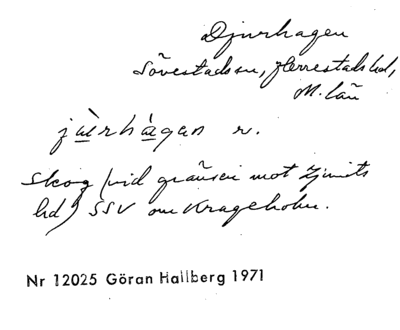 Djurhagen
Sövestads sn, Herrestads hd,
M. län
jùrhàgan r.
Skog (vid gränsen mot Ljunits
hd) SSV om Krageholm.
Nr 12025 Göran Hallberg 1971